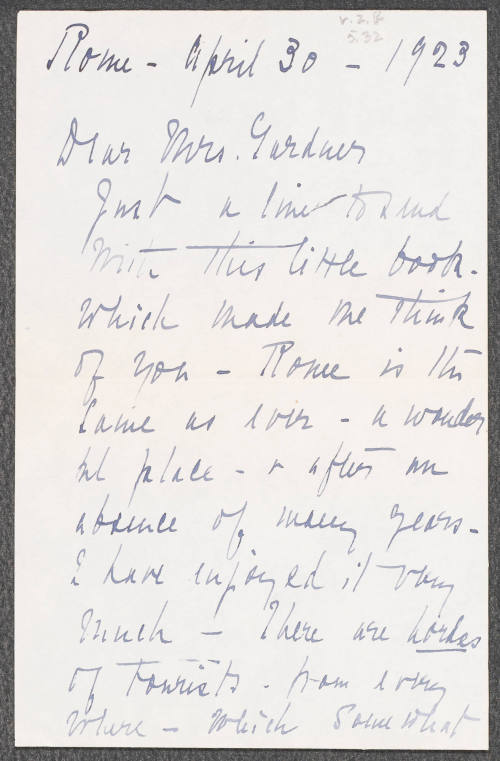 v. 2. 8
5.32
Rome - April 30 - 1923
Dear Mrs. Gardner
Just a line to send
With this little book -
Which made me think
of you - Rome is the
same as ever - a wonder
ful place - & after an
absence of many years -
I have enjoyed it very
much - There are hordes
of tourists - from every
where - Which somewhat